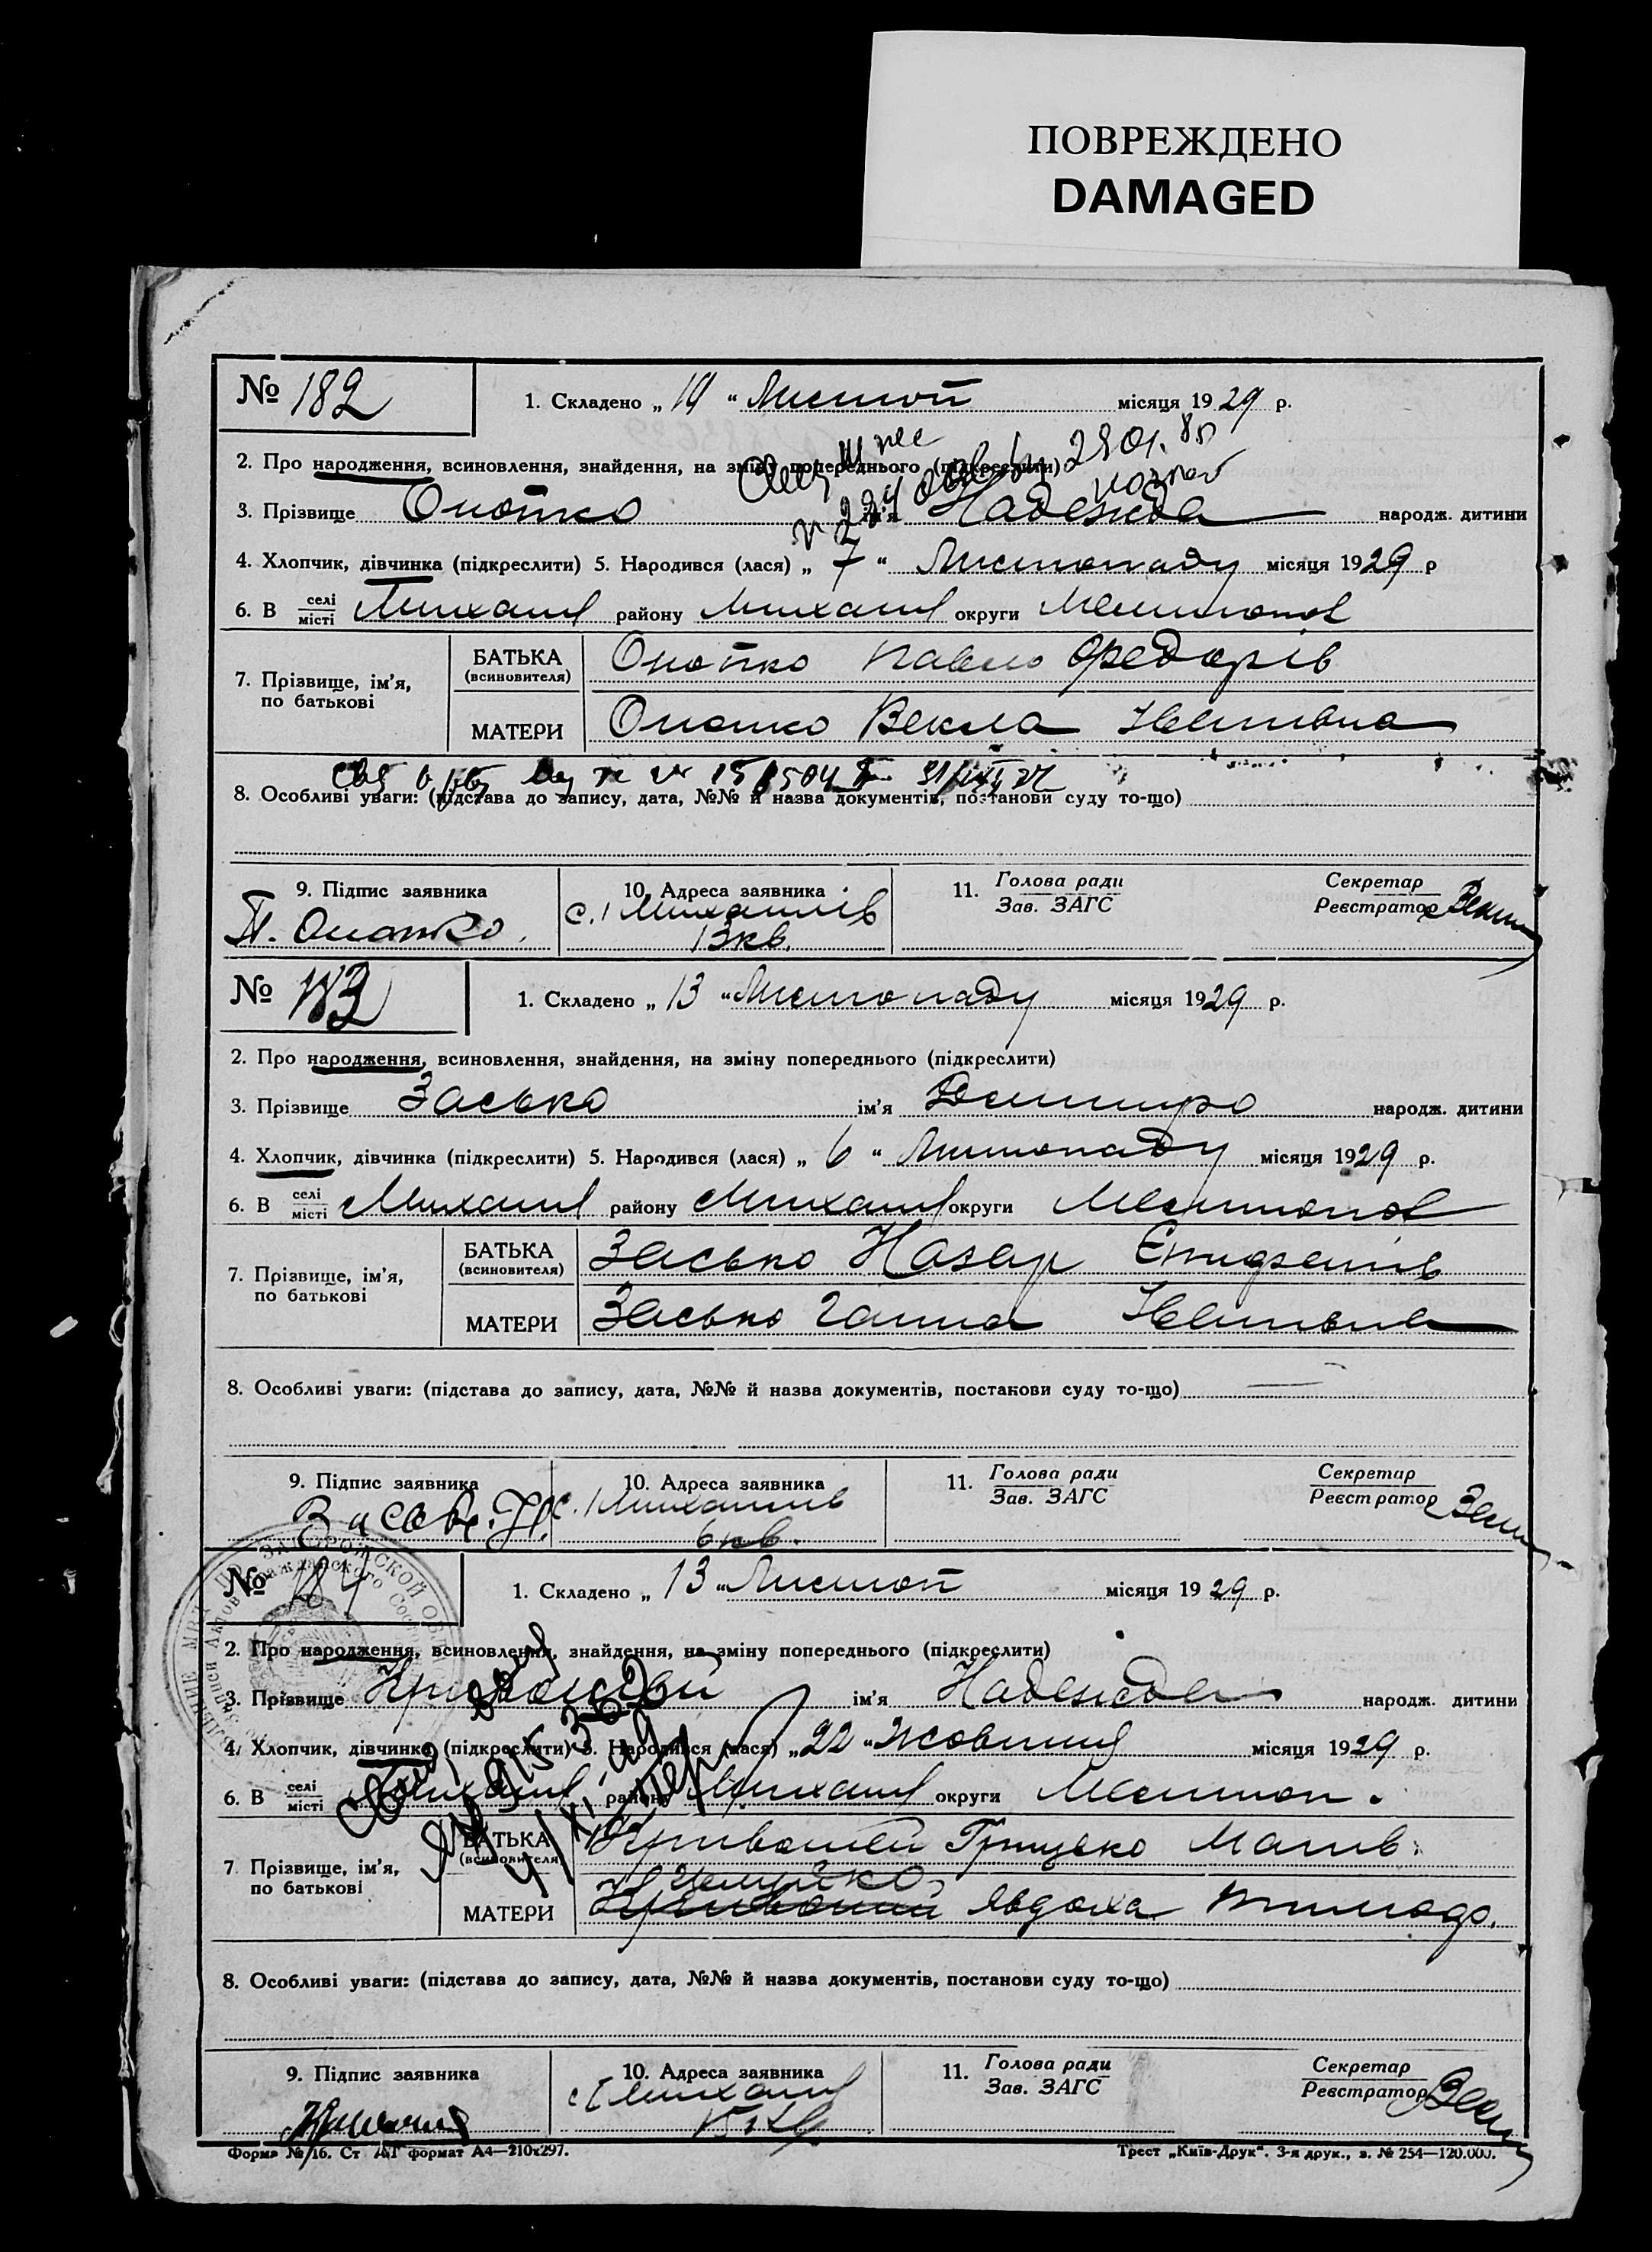 ПОВРЕЖДЕНО
DAMAGED
№ 182
1. Складено „ “ Листоп місяця 1929 р.
2. Про народження, всиновлення, знайдення, на зміну попереднього (підкреслити)
3. Прізвище Онопко ім'я Надежда народж. дитини
4. Хлопчик, дівчинка (підкреслити) 5. Народився (лася) „ 7 “ Листопаду місяця 1929 р
6. В селі/місті Михайл району Михайл округи Мелитопол
7. Прізвище, ім'я, по батькові
БАТЬКА (всиновителя) Онопко Павло Федорів
МАТЕРИ Онопко Векла Іванівна
8. Особливі уваги: (підстава до запису, дата, №№ й назва документів, постанови суду то-що)
9. Підпис заявника 10. Адреса заявника 11. Голова ради/Зав. ЗАГС Секретар/Реєстратор
П. Онопко с. Михайлів
13 кв.
№ 183
1. Складено „ 13 “ Листопаду місяця 1929 р.
2. Про народження, всиновлення, знайдення, на зміну попереднього (підкреслити)
3. Прізвище Засько ім'я Дмитро народж. дитини
4. Хлопчик, дівчинка (підкреслити) 5. Народився (лася) „ 6 “ Листопаду місяця 1929 р.
6. В селі/місті Михайл району Михайл округи Мелитопол
7. Прізвище, ім'я, по батькові
БАТЬКА (всиновителя) Засько Назар
МАТЕРИ Засько Ганна Іванівна
8. Особливі уваги: (підстава до запису, дата, №№ й назва документів, постанови суду то-що)
9. Підпис заявника 10. Адреса заявника 11. Голова ради/Зав. ЗАГС Секретар/Реєстратор
с. Михайлів
6 кв.
№ 184
1. Складено „ 13 “ Листоп місяця 1929 р.
2. Про народження, всиновлення, знайдення, на зміну попереднього (підкреслити)
3. Прізвище Кривошей ім'я Надежда народж. дитини
4. Хлопчик, дівчинка (підкреслити) 5. Народився (лася) „ 22 “ Жовтня місяця 1929 р.
6. В селі/місті Михайл району Михайл округи Мелитоп.
7. Прізвище, ім'я, по батькові
БАТЬКА (всиновителя) Кривошей Грицько Матв.
МАТЕРИ Явдоха Тимоф.
8. Особливі уваги: (підстава до запису, дата, №№ й назва документів, постанови суду то-що)
9. Підпис заявника 10. Адреса заявника 11. Голова ради/Зав. ЗАГС Секретар/Реєстратор
с. Михайл
Форма № 16. Ст формат А4—210х297. Трест „Київ-Друк“. 3-я друк., з. № 254—120.000.